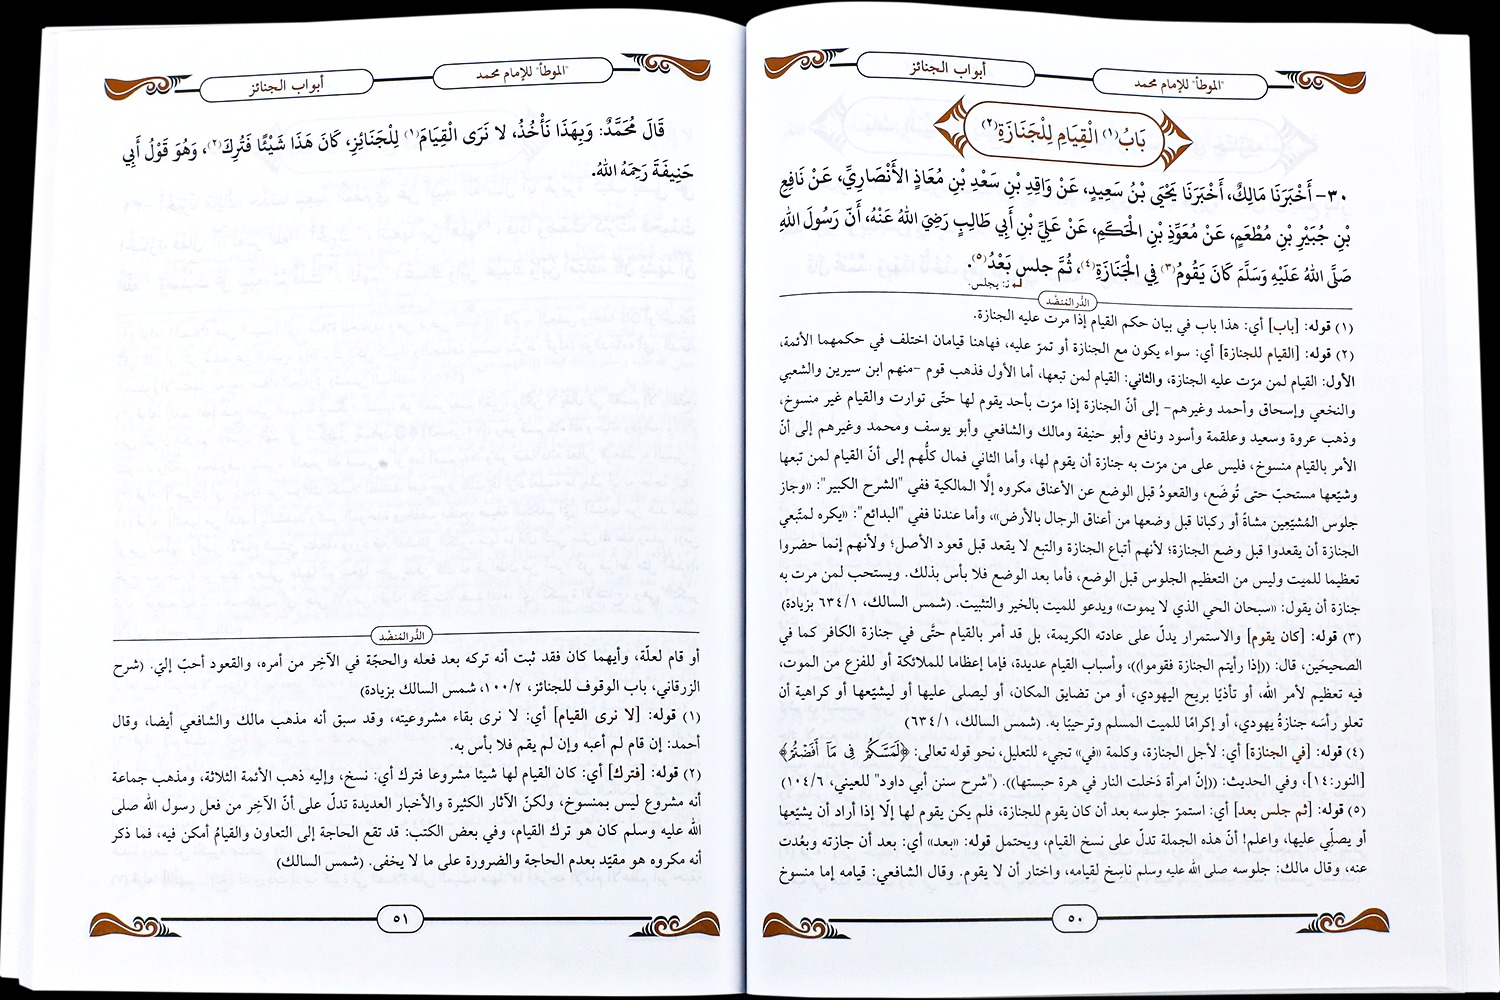 أبواب الجنائز
"الموطأ" للإمام محمد
بَابُ(١) الْقِيَامِ لِلْجَنَازَةِ(٢)
٣٠- أَخْبَرَنَا مَالِكٌ، أَخْبَرَنَا يَحْيَى بْنُ سَعِيدٍ، عَنْ وَاقِدِ بْنِ سَعْدِ بْنِ مُعَاذٍ الأَنْصَارِيِّ، عَنْ نَافِعِ
بْنِ جُبَيْرِ بْنِ مُطْعَمٍ، عَنْ مُعَوِّذِ بْنِ الْحَكَمِ، عَنْ عَلِيِّ بْنِ أَبِي طَالِبٍ رَضِيَ اللهُ عَنْهُ، أَنّ رَسُولَ اللهِ
صَلَّى اللهُ عَلَيْهِ وَسَلَّمَ كَانَ يَقُومُ(٣) فِي الْجَنَازَةِ(٤)، ثُمَّ جلس بَعْدُ(٥).
ن: يجلس.
الدُّر المُنضّد
(١) قوله: [باب] أي: هذا باب في بيان حكم القيام إذا مرت عليه الجنازة.
(٢) قوله: [القيام للجنازة] أي: سواء يكون مع الجنازة أو تمرّ عليه، فهاهنا قيامان اختلف في حكمهما الأئمة،
الأول: القيام لمن مرّت عليه الجنازة، والثاني: القيام لمن تبعها، أما الأول فذهب قوم -منهم ابن سيرين والشعبي
والنخعي وإسحاق وأحمد وغيرهم- إلى أنّ الجنازة إذا مرّت بأحد يقوم لها حتّى توارت والقيام غير منسوخ،
وذهب عروة وسعيد وعلقمة وأسود ونافع وأبو حنيفة ومالك والشافعي وأبو يوسف ومحمد وغيرهم إلى أنّ
الأمر بالقيام منسوخ، فليس على من مرّت به جنازة أن يقوم لها، وأما الثاني فمال كلُّهم إلى أنّ القيام لمن تبعها
وشيّعها مستحبّ حتى تُوضَع، والقعودُ قبل الوضع عن الأعناق مكروه إلّا المالكية ففي "الشرح الكبير": «وجاز
جلوس المُشيّعِين مشاةً أو ركبانا قبل وضعها من أعناق الرجال بالأرض»، وأما عندنا ففي "البدائع": «يكره لمتّبعي
الجنازة أن يقعدوا قبل وضع الجنازة؛ لأنهم أتباع الجنازة والتبع لا يقعد قبل قعود الأصل؛ ولأنهم إنما حضروا
تعظيما للميت وليس من التعظيم الجلوس قبل الوضع، فأما بعد الوضع فلا بأس بذلك. ويستحب لمن مرت به
جنازة أن يقول: «سبحان الحي الذي لا يموت» ويدعو للميت بالخير والتثبيت. (شمس السالك، ٦٣٤/١ بزيادة)
(٣) قوله: [كان يقوم] والاستمرار يدلّ على عادته الكريمة، بل قد أمر بالقيام حتَّى في جنازة الكافر كما في
الصحيحَين، قال: ((إذا رأيتم الجنازة فقوموا))، وأسباب القيام عديدة، فإما إعظاما للملائكة أو للفزع من الموت،
فيه تعظيم لأمر الله، أو تأذيًا بريح اليهودي، أو من تضايق المكان، أو ليصلى عليها أو ليشيّعها أو كراهية أن
تعلو رأسَه جنازةُ يهودي، أو إكرامًا للميت المسلم وترحيبًا به. (شمس السالك، ٦٣٤/١)
(٤) قوله: [في الجنازة] أي: لأجل الجنازة، وكلمة «في» تجيء للتعليل، نحو قوله تعالى: ﴿لَمَسَّكُمْ فِى مَآ أَفَضْتُمْ﴾
[النور:١٤]، وفي الحديث: ((إنّ امرأة دَخلت النار في هرة حبستها)). ("شرح سنن أبي داود" للعيني، ١٠٤/٦)
(٥) قوله: [ثم جلس بعد] أي: استمرّ جلوسه بعد أن كان يقوم للجنازة، فلم يكن يقوم لها إلّا إذا أراد أن يشيّعها
أو يصلّي عليها، واعلم! أنّ هذه الجملة تدلّ على نسخ القيام، ويحتمل قوله: «بعد» أي: بعد أن جازته وبعُدت
عنه، وقال مالك: جلوسه صلى الله عليه وسلم ناسِخ لقيامه، واختار أن لا يقوم. وقال الشافعي: قيامه إما منسوخ
٥٠
أبواب الجنائز
"الموطأ" للإمام محمد
قَالَ مُحَمَّدٌ: وَبِهَذَا نَأْخُذُ، لا نَرَى الْقِيَامَ(١) لِلْجَنَائِزِ، كَانَ هَذَا شَيْئًا فَتُرِكَ(٢)، وَهُوَ قَوْلُ أَبِي
حَنِيفَةَ رَحِمَهُ اللهُ.
الدُّر المُنضّد
أو قام لعلّة، وأيهما كان فقد ثبت أنه تركه بعد فعله والحجّة في الآخِر من أمره، والقعود أحبّ إليّ. (شرح
الزرقاني، باب الوقوف للجنائز، ١٠٠/٢، شمس السالك بزيادة)
(١) قوله: [لا نرى القيام] أي: لا نرى بقاء مشروعيته، وقد سبق أنه مذهب مالك والشافعي أيضا، وقال
أحمد: إن قام لم أعبه وإن لم يقم فلا بأس به.
(٢) قوله: [فترك] أي: كان القيام لها شيئا مشروعا فترك أي: نسخ، وإليه ذهب الأئمة الثلاثة، ومذهب جماعة
أنه مشروع ليس بمنسوخ، ولكنّ الآثار الكثيرة والأخبار العديدة تدلّ على أنّ الآخِر من فعل رسول الله صلى
الله عليه وسلم كان هو ترك القيام، وفي بعض الكتب: قد تقع الحاجة إلى التعاون والقيامُ أمكن فيه، فما ذكر
أنه مكروه هو مقيّد بعدم الحاجة والضرورة على ما لا يخفى. (شمس السالك)
٥١